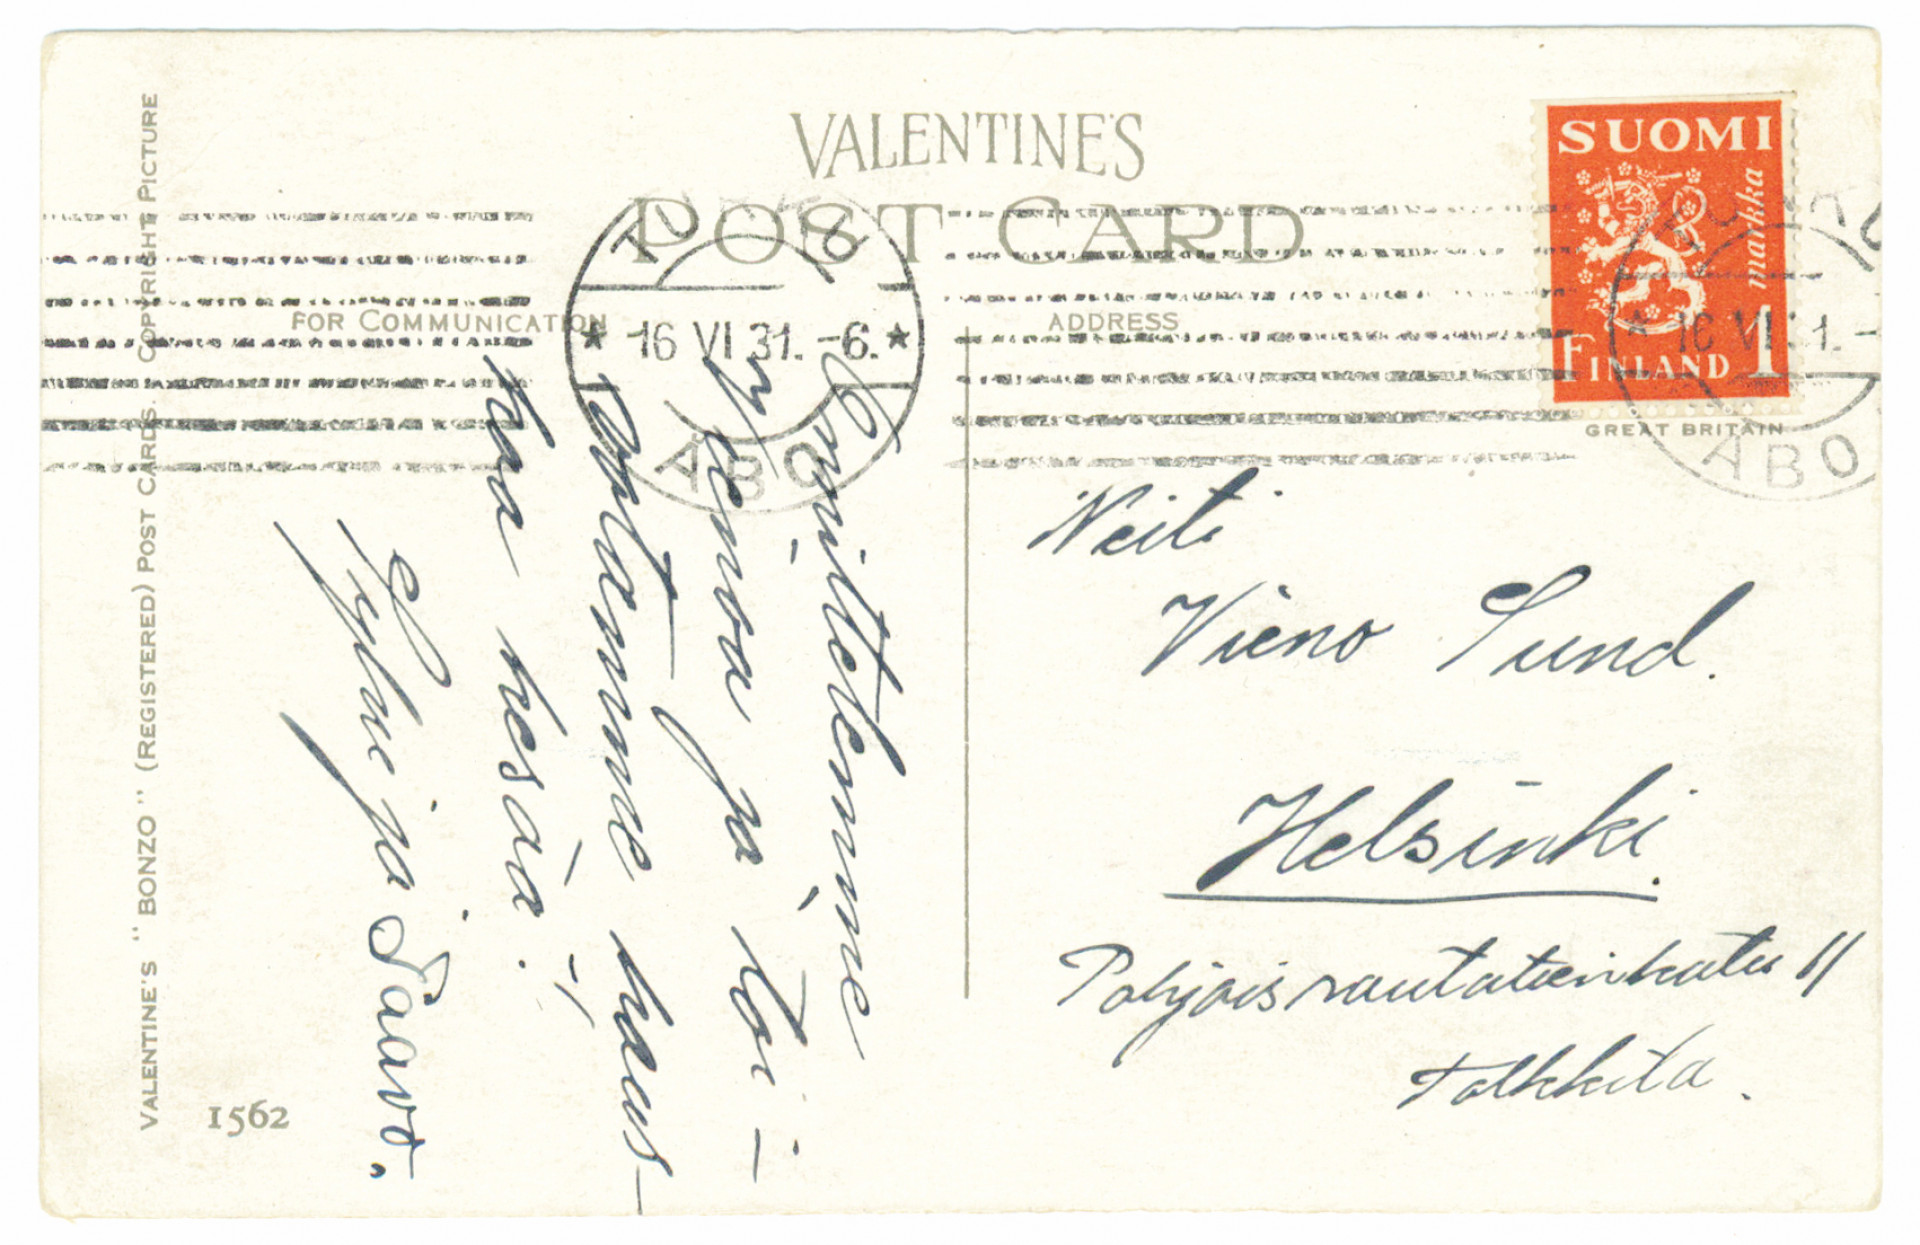 VALENTINE'S
POST CARD
FOR COMMUNICATION
ADDRESS
SUOMI
1 markka
FINLAND
GREAT BRITAIN
TURKU
16 VI 31. -6.
ÅBO
TURKU
16 VI 31. -
ÅBO
Onnittelemme
ja toi-
votamme haus-
kaa kesää. -
ja Paavo.
Neiti
Vieno Sund.
Helsinki.
Pohjoisrautatienkatu 11
VALENTINE'S "BONZO" (REGISTERED) POST CARDS. COPYRIGHT PICTURE
1562